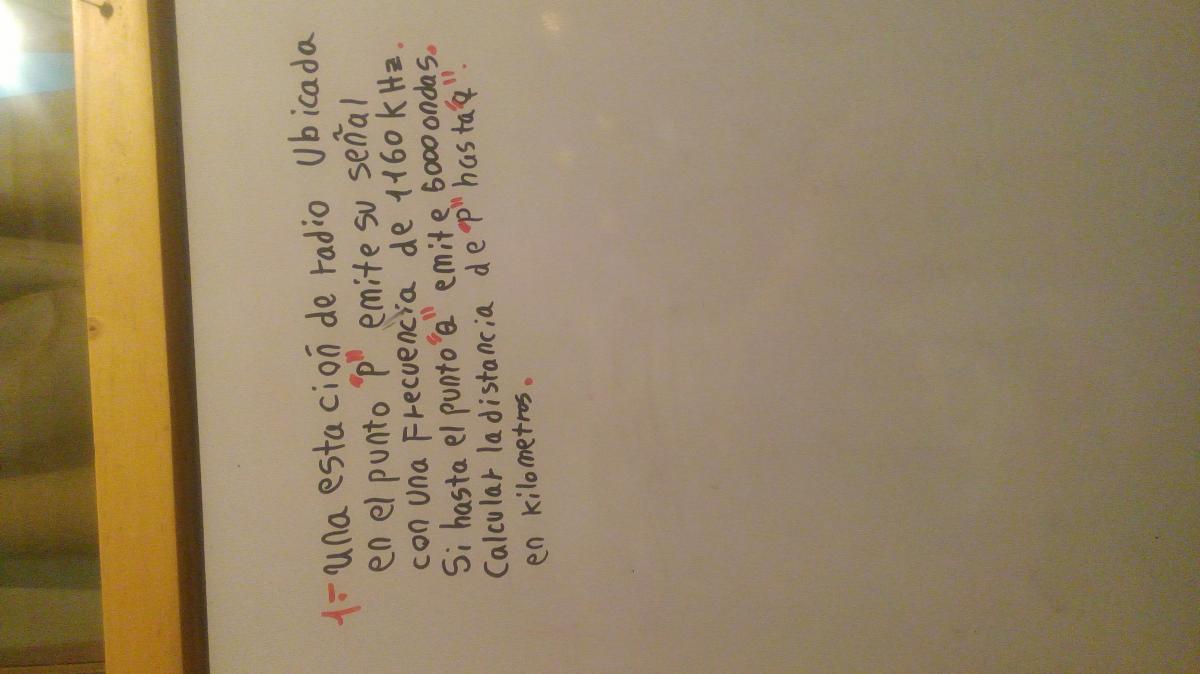 1=Una estación de radio Ubicada
en el punto "p" emite su señal
con una Frecuencia de 1160 kHz.
Si hasta el punto "Q" emite 6000 ondas.
Calcular la distancia de "p" hasta "q".
en kilometros.